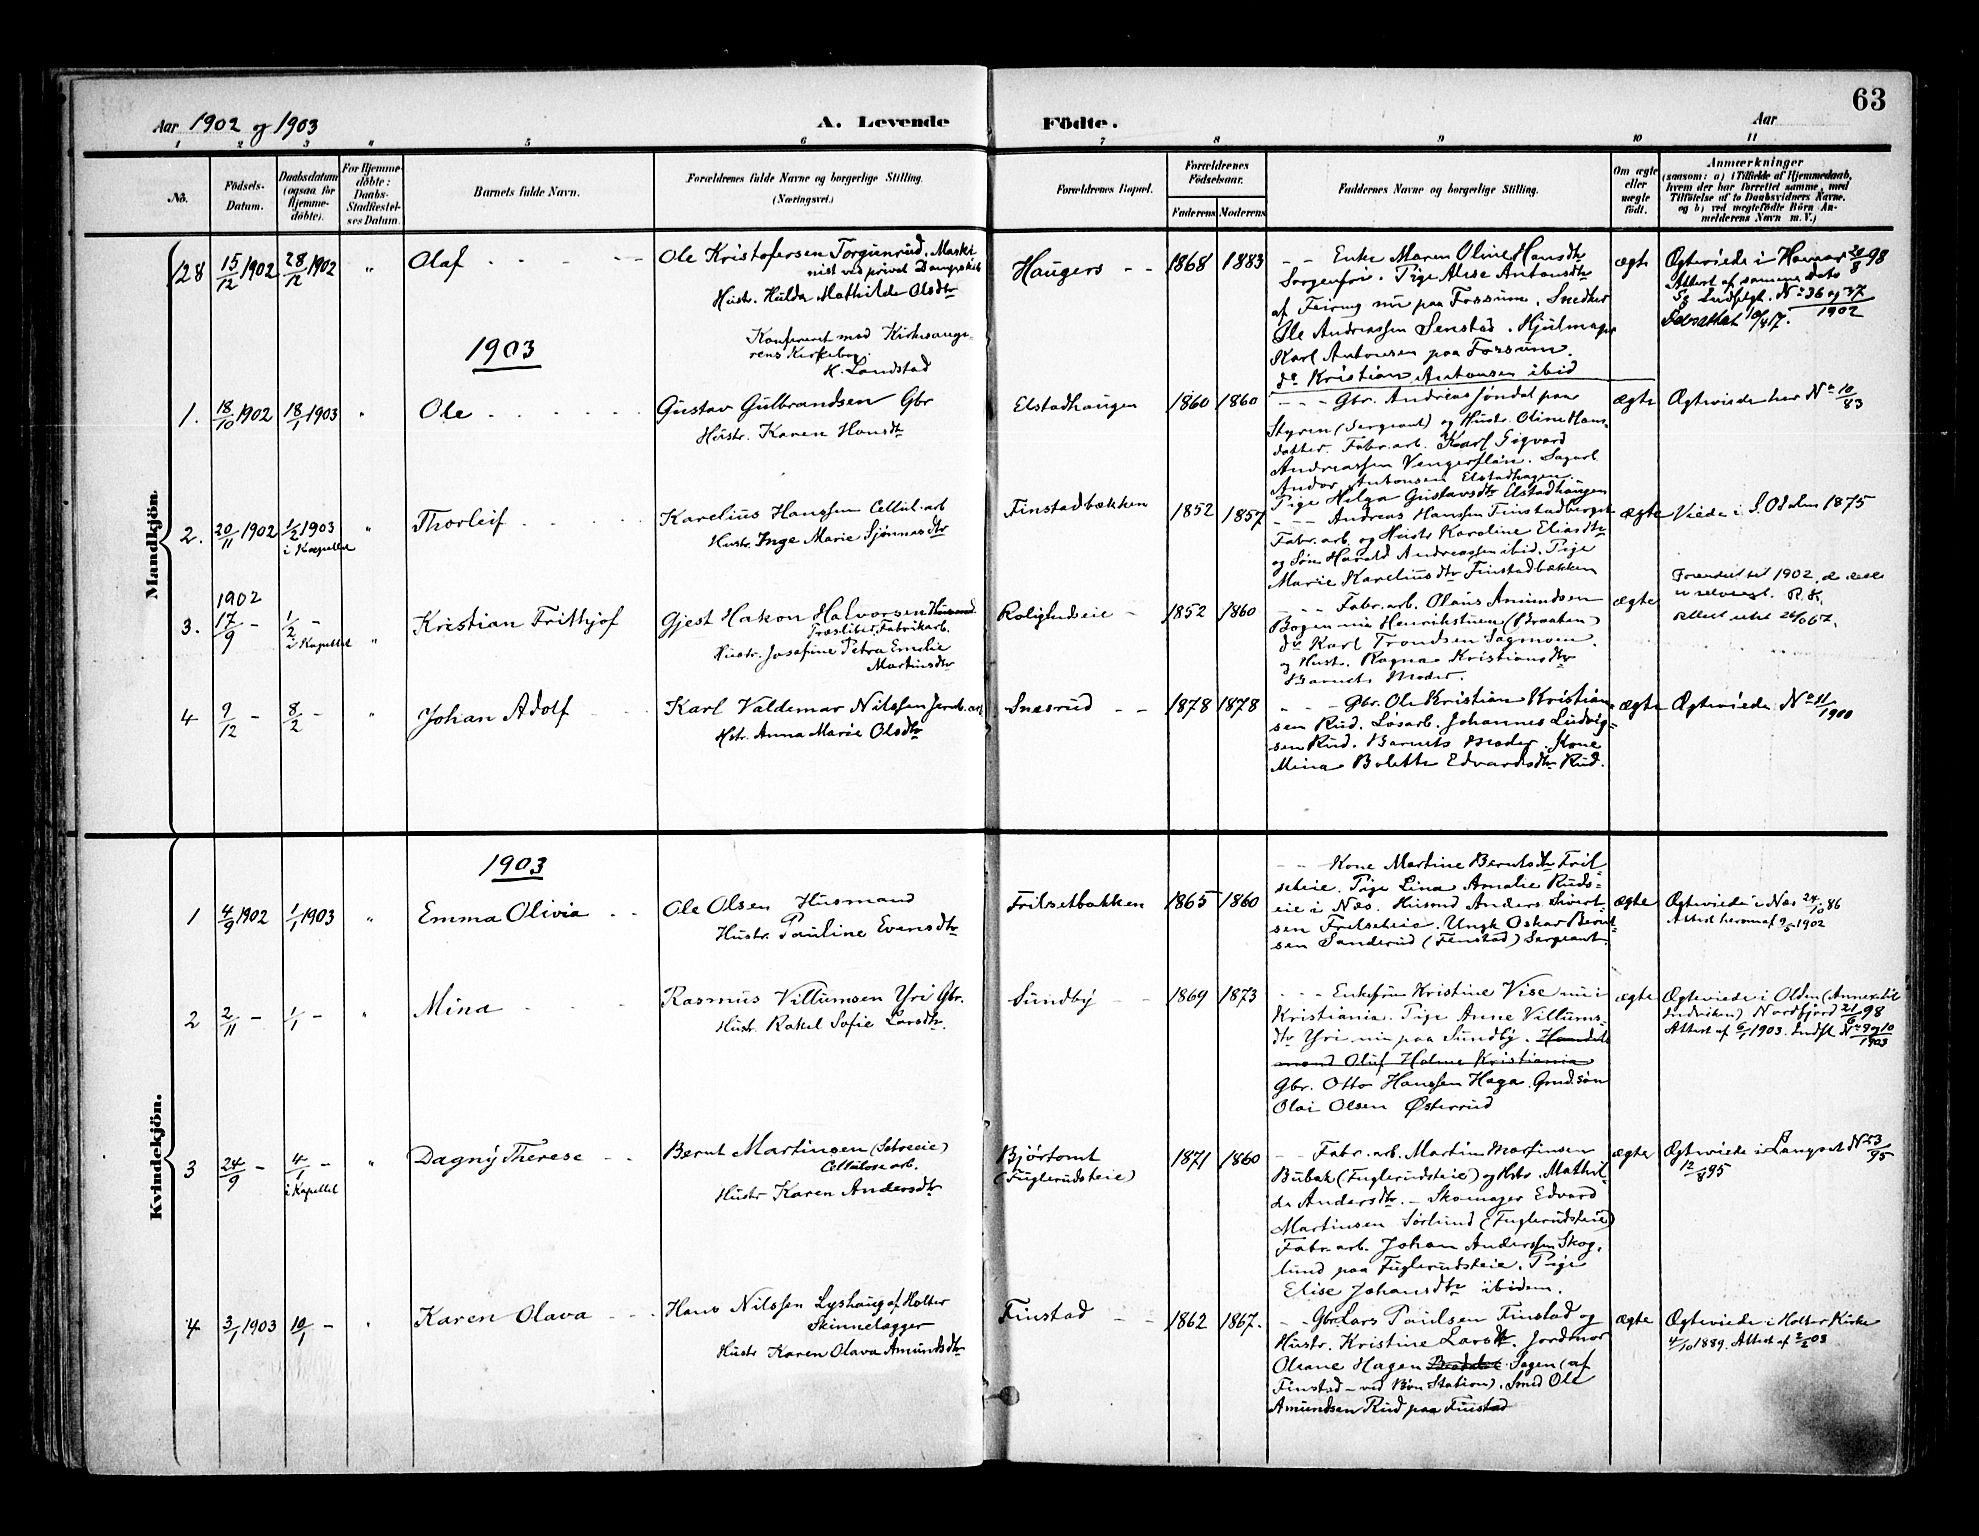 63
Aar 1902 og 1903
A. Levende Födte.
Aar
1 2 3 4 5 6 7 8 9 10 11
No.
Födsels-
Datum.
Daabsdatum
(ogsaa for
Hjemme-
döbte).
For Hjemme-
döbte:
Daabs-
Stadfæstel-
ses Datum.
Barnets fulde Navn.
Forældrenes fulde Navne og borgerlige Stilling.
(Næringsvei.)
Forældrenes Bopæl.
Forældrenes
Födselsaar.
Faderens Moderens
Faddernes Navne og borgerlige Stilling.
Om ægte
eller
uægte
födt.
Anmærkninger
(saasom: a) i Tilfælde af Hjemmedaab,
hvem der har forrettet samme, med
Tilföielse af to Daabsvidners Navne.
og b) ved uægtefödte Börn An-
melderens Navn m. V.)
Mandkjön.
128 15/12 1902 28/12 1902 " Olaf
Ole Kristofersen Torgunrud, Maski
nist ved privat Dampskib
Hustr. Hulda Mathilde Olsdtr
Haugers 1868 1883
Enke Maren Oline Hansdtr
Sorgenfri. Pige Alise Antonsdtr
af Feiring nu paa Fossum. Snedker
Ole Andreassen Senstad. Hjulmager
Karl Antonsen paa Fossum.
do Kristian Antonsen ibid
ægte
Ægteviede i Hamar 20/8 98
Attest af samme dato
Sg Indfgt. No 36 og 37
1902
1903
Konfereret med Kirkesange-
rens Kirkebog.
K. Landstad
1. 18/10 1902 18/1 1903 " Ole
Gustav Gulbrandsen Gbr
Hustr. Karen Hansdtr
Elstadhaugen 1860 1860
Gbr. Andreas Jøndal paa
Styren (Sergeant) og Hustr. Oline Hans-
datter. Fabr. arb. Karl Sigvard
Andreassen Vengerflān. Sagarb.
Andor Antonsen Elstadhagen.
Pige Helga Gustavsdtr Elstadhaugen
ægte
Ægteviede her No 10/83
2. 20/11 1902 1/2 1903 " Thorleif
i Kapellet
Karelius Hanssen Cellul. arb
Hustr. Inge Marie Sjønnesdtr
Finstadbækken 1852 1857
Andreas Hanssen Finstadberget
Fabr. arb. og Hustr Karoline Eliasdtr
og Søn Harald Andreassen ibid. Pige
Marie Kareliusdtr Finstadbækken
ægte
Viede i S. Odalen 1875
1902
3. 17/9 - 1/2 - " Kristian Frithjof
i Kapellet
Gjest Hakon Halvorsen Husmd.
Træsliber, Fabrikarb.
Hustr. Josefine Petra Emelie
Martinsdtr
Rolighedseie 1852 1860
Fabr. arb. Olaus Amundsen
Bogen nu Henrikstuen (Braaten)
do Karl Trondsen Sagmoen.
og Hustr. Ragna Kristiansdtr
Barnets Moder.
ægte
4 9/12 - 8/2 - " Johan Adolf
Karl Valdemar Nilssen Jernb. arb
Hstr. Anna Marie Olsdtr
Snesrud 1878 1878
Gbr. Ole Kristian Kristian-
sen Rud. Løsarb. Johannes Ludvig-
sen Rud. Barnets Moder. Kone
Mina Bolette Edvardsdtr Rud.
ægte
Ægteviede No 11/1900
Kvindekjön.
1903
1 4/9 1902 1/1 1903 " Emma Olivia
Ole Olsen Husmand
Hustr. Pauline Evensdtr
Frilsetbakken 1865 1860
Kone Martine Berntsdtr Fril
seteie. Pige Lina Amalie Ruds-
eie i Næs. Husmd Anders Sivert
sen Frilseteie. Ungk Oskar Bernt-
sen Sanderud (Finstad) Sergeant
ægte
Ægteviede i Næs 24/10 86
Attest herom af 9/5 1902
2 2/11 - 1/1 - " Mina
Rasmus Villumsen Yri Gbr.
Hustr. Rakel Sofie Larsdtr.
Sundby 1869 1873
Enkefru Kristine Vise nu i
Kristiania. Pige Anne Villums-
dtr Yri nu paa Sundby. Handels
mand Oluf Holme Kristiania
Gbr. Otto Hanssen Haga. Grndsøn
Olai Olsen Østerrud
ægte
Ægteviede i Olden (Annex til
Indviken) Nordfjord 21/6 98
Attest af 6/1 1903. Indfl. No 9 og 10
1903
3 24/9 - 4/1 - " Dagny Therese
i Kapellet
Bernt Martinsen (Sætreeie)
Cellulose arb.
Hustr Karen Andersdtr
Bjørtomt
(Fuglerudseie)
1871 1860
Fabr. arb. Martin Martinsen
Bubak (Fuglerudseie) og Hstr. Mathil-
de Andersdtr. - Skomager Edvard
Martinsen Sørlund (Fuglerudseie)
Fabr. arb. Johan Anderssen Skog-
lund paa Fuglerudseie. Pige
Elise Johansdtr ibidem.
ægte
Ægteviede i Langset No 3/95
12/8 95
4 3/1 1903 10/1 - " Karen Olava
Hans Nilssen Lyshaug af Holter
Skinnelægger
Hustr Karen Olava Amundsdtr
Finstad 1862 1867.
Gbr Lars Paulsen Finstad og
Hustr. Kristine Larsdtr. Jordmor
Oleane Hagen Sagen (af
Finstad - ved Bøn Station). Smed Ole
Amundsen Rud paa Finstad
ægte
Ægteviede i Holter Kirke
4/10 1889. Attest af 2/2 03